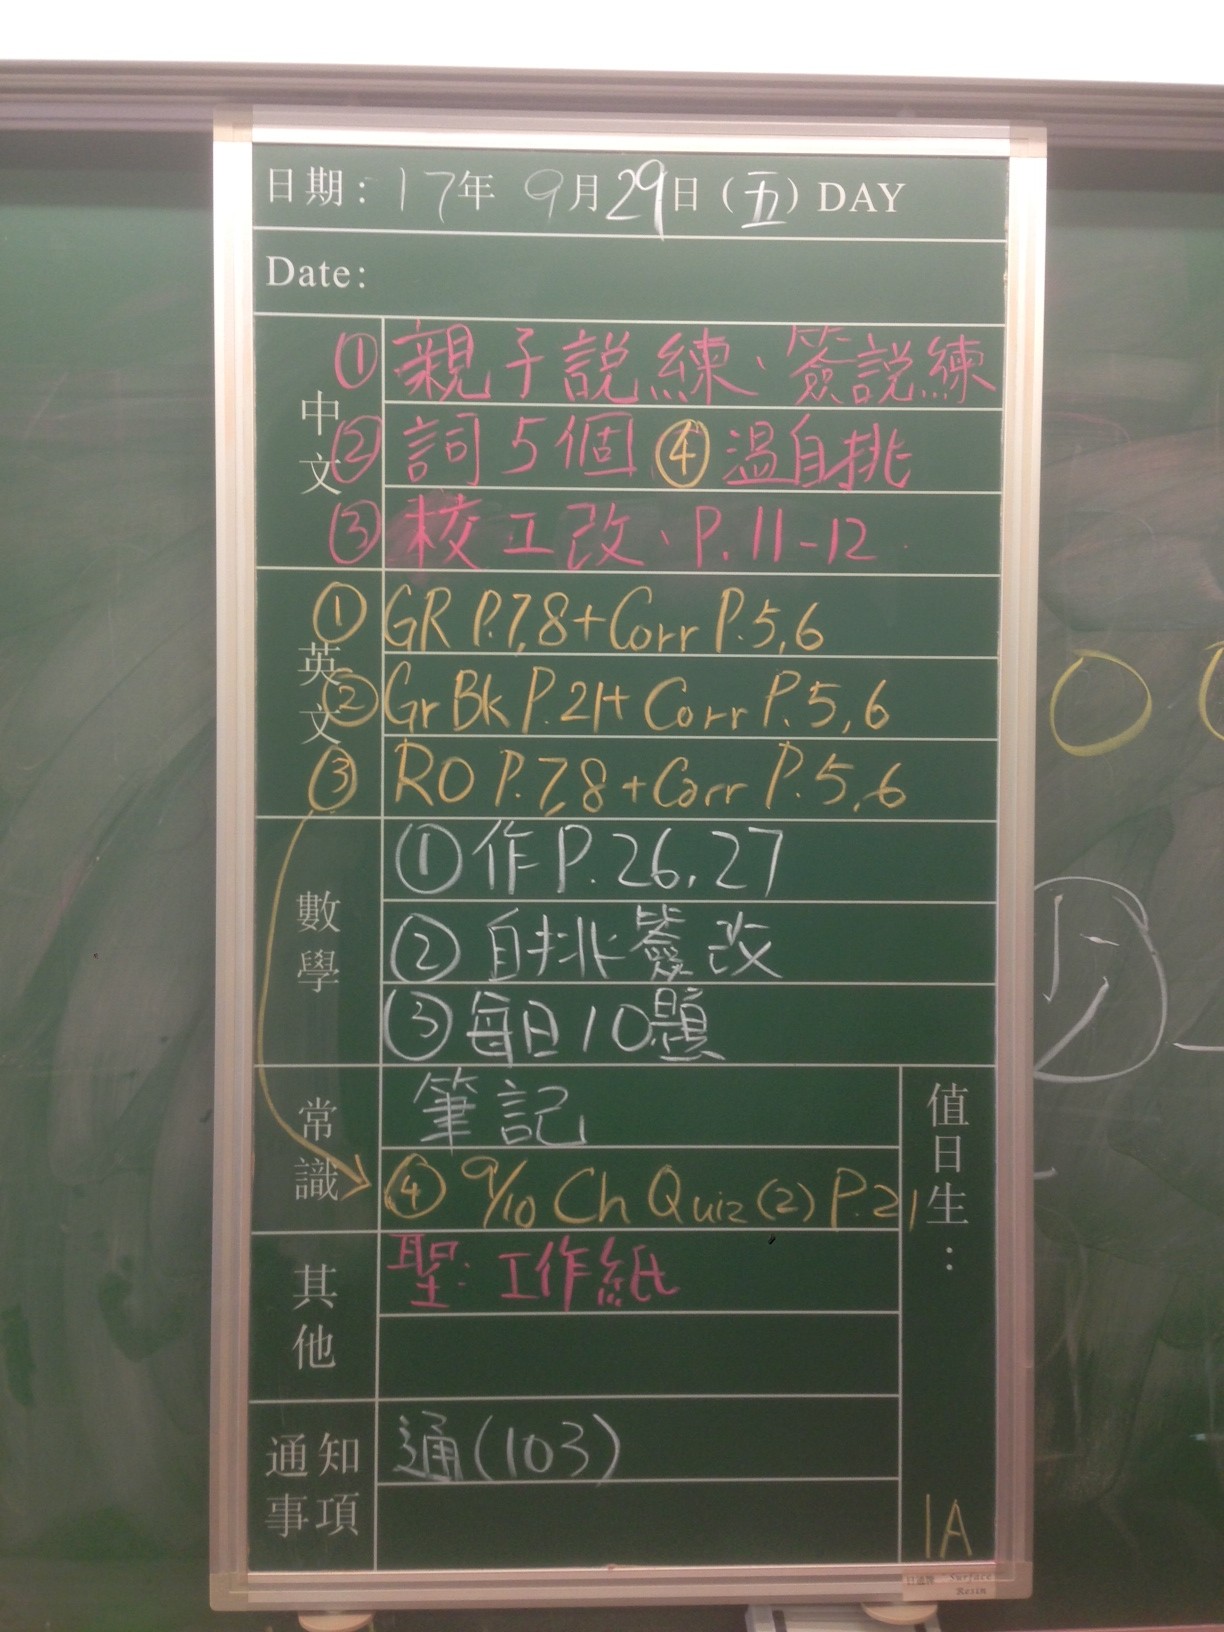 日期: 17年 9月29日 (五) DAY
Date:
中文
① 親子説練、簽説練
② 詞5個 ④ 溫自挑
③ 校工改、P.11-12
英文
① GR P.7,8+Corr P.5,6
② Gr Bk P.21+ Corr P.5,6
③ RO P.7,8+Corr P.5,6
數學
① 作P.26,27
② 自挑簽改
③ 每日10題
常識
筆記
④ 9/10 Ch Quiz (2) P.21
值日生:
其他
聖: 工作紙
通知事項
通(103)
1A